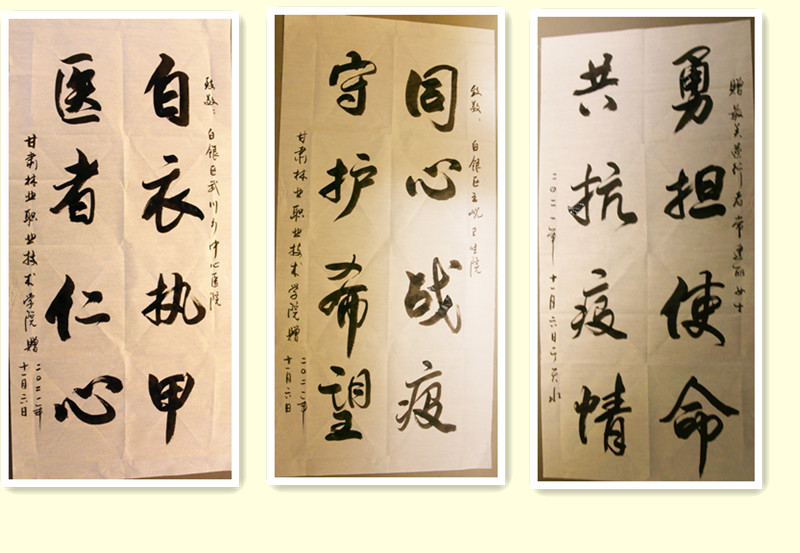 致敬：白银区武川乡中心医院
白衣执甲
医者仁心
甘肃林业职业技术学院赠
二〇二一年
十一月六日
致敬：白银区王岘卫生院
同心战疫
守护希望
甘肃林业职业技术学院赠
二〇二一年
十一月六日
赠最美逆行者常建丽女士
勇担使命
共抗疫情
二〇二一年十一月六日于天水